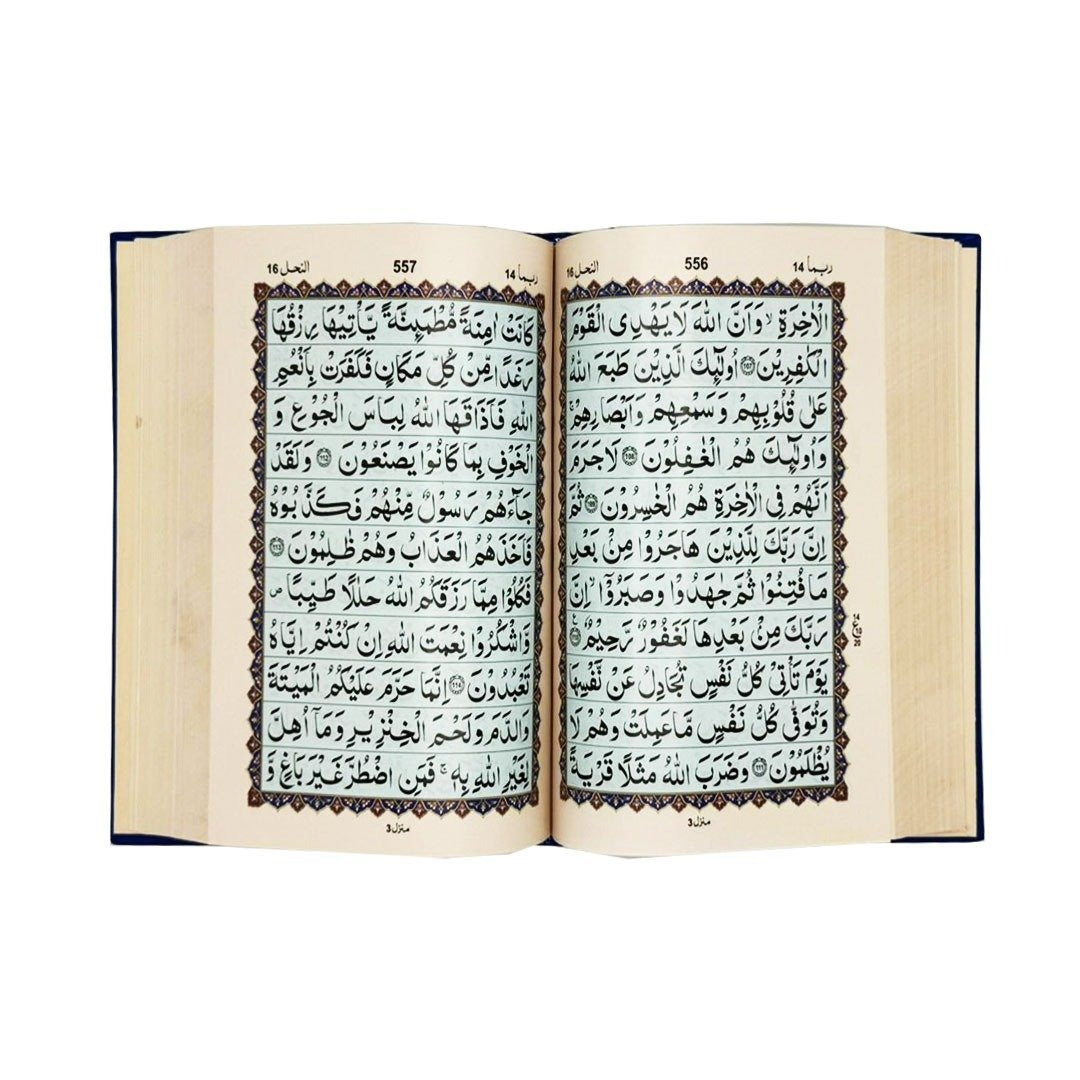 ربما ١٤ 556 النحل ١٦
الْاٰخِرَةِ ۙ وَاَنَّ اللّٰهَ لَا يَهْدِى الْقَوْمَ
الْكٰفِرِيْنَ ۝۱۰۷ اُولٰٓئِكَ الَّذِيْنَ طَبَعَ اللّٰهُ
عَلٰى قُلُوْبِهِمْ وَسَمْعِهِمْ وَاَبْصَارِهِمْ ۚ
وَاُولٰٓئِكَ هُمُ الْغٰفِلُوْنَ ۝۱۰۸ لَا جَرَمَ
اَنَّهُمْ فِى الْاٰخِرَةِ هُمُ الْخٰسِرُوْنَ ۝۱۰۹ ثُمَّ
اِنَّ رَبَّكَ لِلَّذِيْنَ هَاجَرُوْا مِنْۢ بَعْدِ
مَا فُتِنُوْا ثُمَّ جٰهَدُوْا وَصَبَرُوْۤا ۙ اِنَّ
رَبَّكَ مِنْۢ بَعْدِهَا لَغَفُوْرٌ رَّحِيْمٌ ۝۱۱۰
يَوْمَ تَاْتِىْ كُلُّ نَفْسٍ تُجَادِلُ عَنْ نَّفْسِهَا
وَتُوَفّٰى كُلُّ نَفْسٍ مَّا عَمِلَتْ وَهُمْ لَا
يُظْلَمُوْنَ ۝۱۱۱ وَضَرَبَ اللّٰهُ مَثَلًا قَرْيَةً
منزل 3
ربما 14 557 النحل 16
كَانَتْ اٰمِنَةً مُّطْمَئِنَّةً يَّاْتِيْهَا رِزْقُهَا
رَغَدًا مِّنْ كُلِّ مَكَانٍ فَكَفَرَتْ بِاَنْعُمِ
اللّٰهِ فَاَذَاقَهَا اللّٰهُ لِبَاسَ الْجُوْعِ وَ
الْخَوْفِ بِمَا كَانُوْا يَصْنَعُوْنَ ۝۱۱۲ وَلَقَدْ
جَآءَهُمْ رَسُوْلٌ مِّنْهُمْ فَكَذَّبُوْهُ
فَاَخَذَهُمُ الْعَذَابُ وَهُمْ ظٰلِمُوْنَ ۝۱۱۳
فَكُلُوْا مِمَّا رَزَقَكُمُ اللّٰهُ حَلٰلًا طَيِّبًا ۖ
وَّاشْكُرُوْا نِعْمَتَ اللّٰهِ اِنْ كُنْتُمْ اِيَّاهُ
تَعْبُدُوْنَ ۝۱۱۴ اِنَّمَا حَرَّمَ عَلَيْكُمُ الْمَيْتَةَ
وَالدَّمَ وَلَحْمَ الْخِنْزِيْرِ وَمَاۤ اُهِلَّ
لِغَيْرِ اللّٰهِ بِهٖ ۚ فَمَنِ اضْطُرَّ غَيْرَ بَاغٍ وَّ
منزل 3